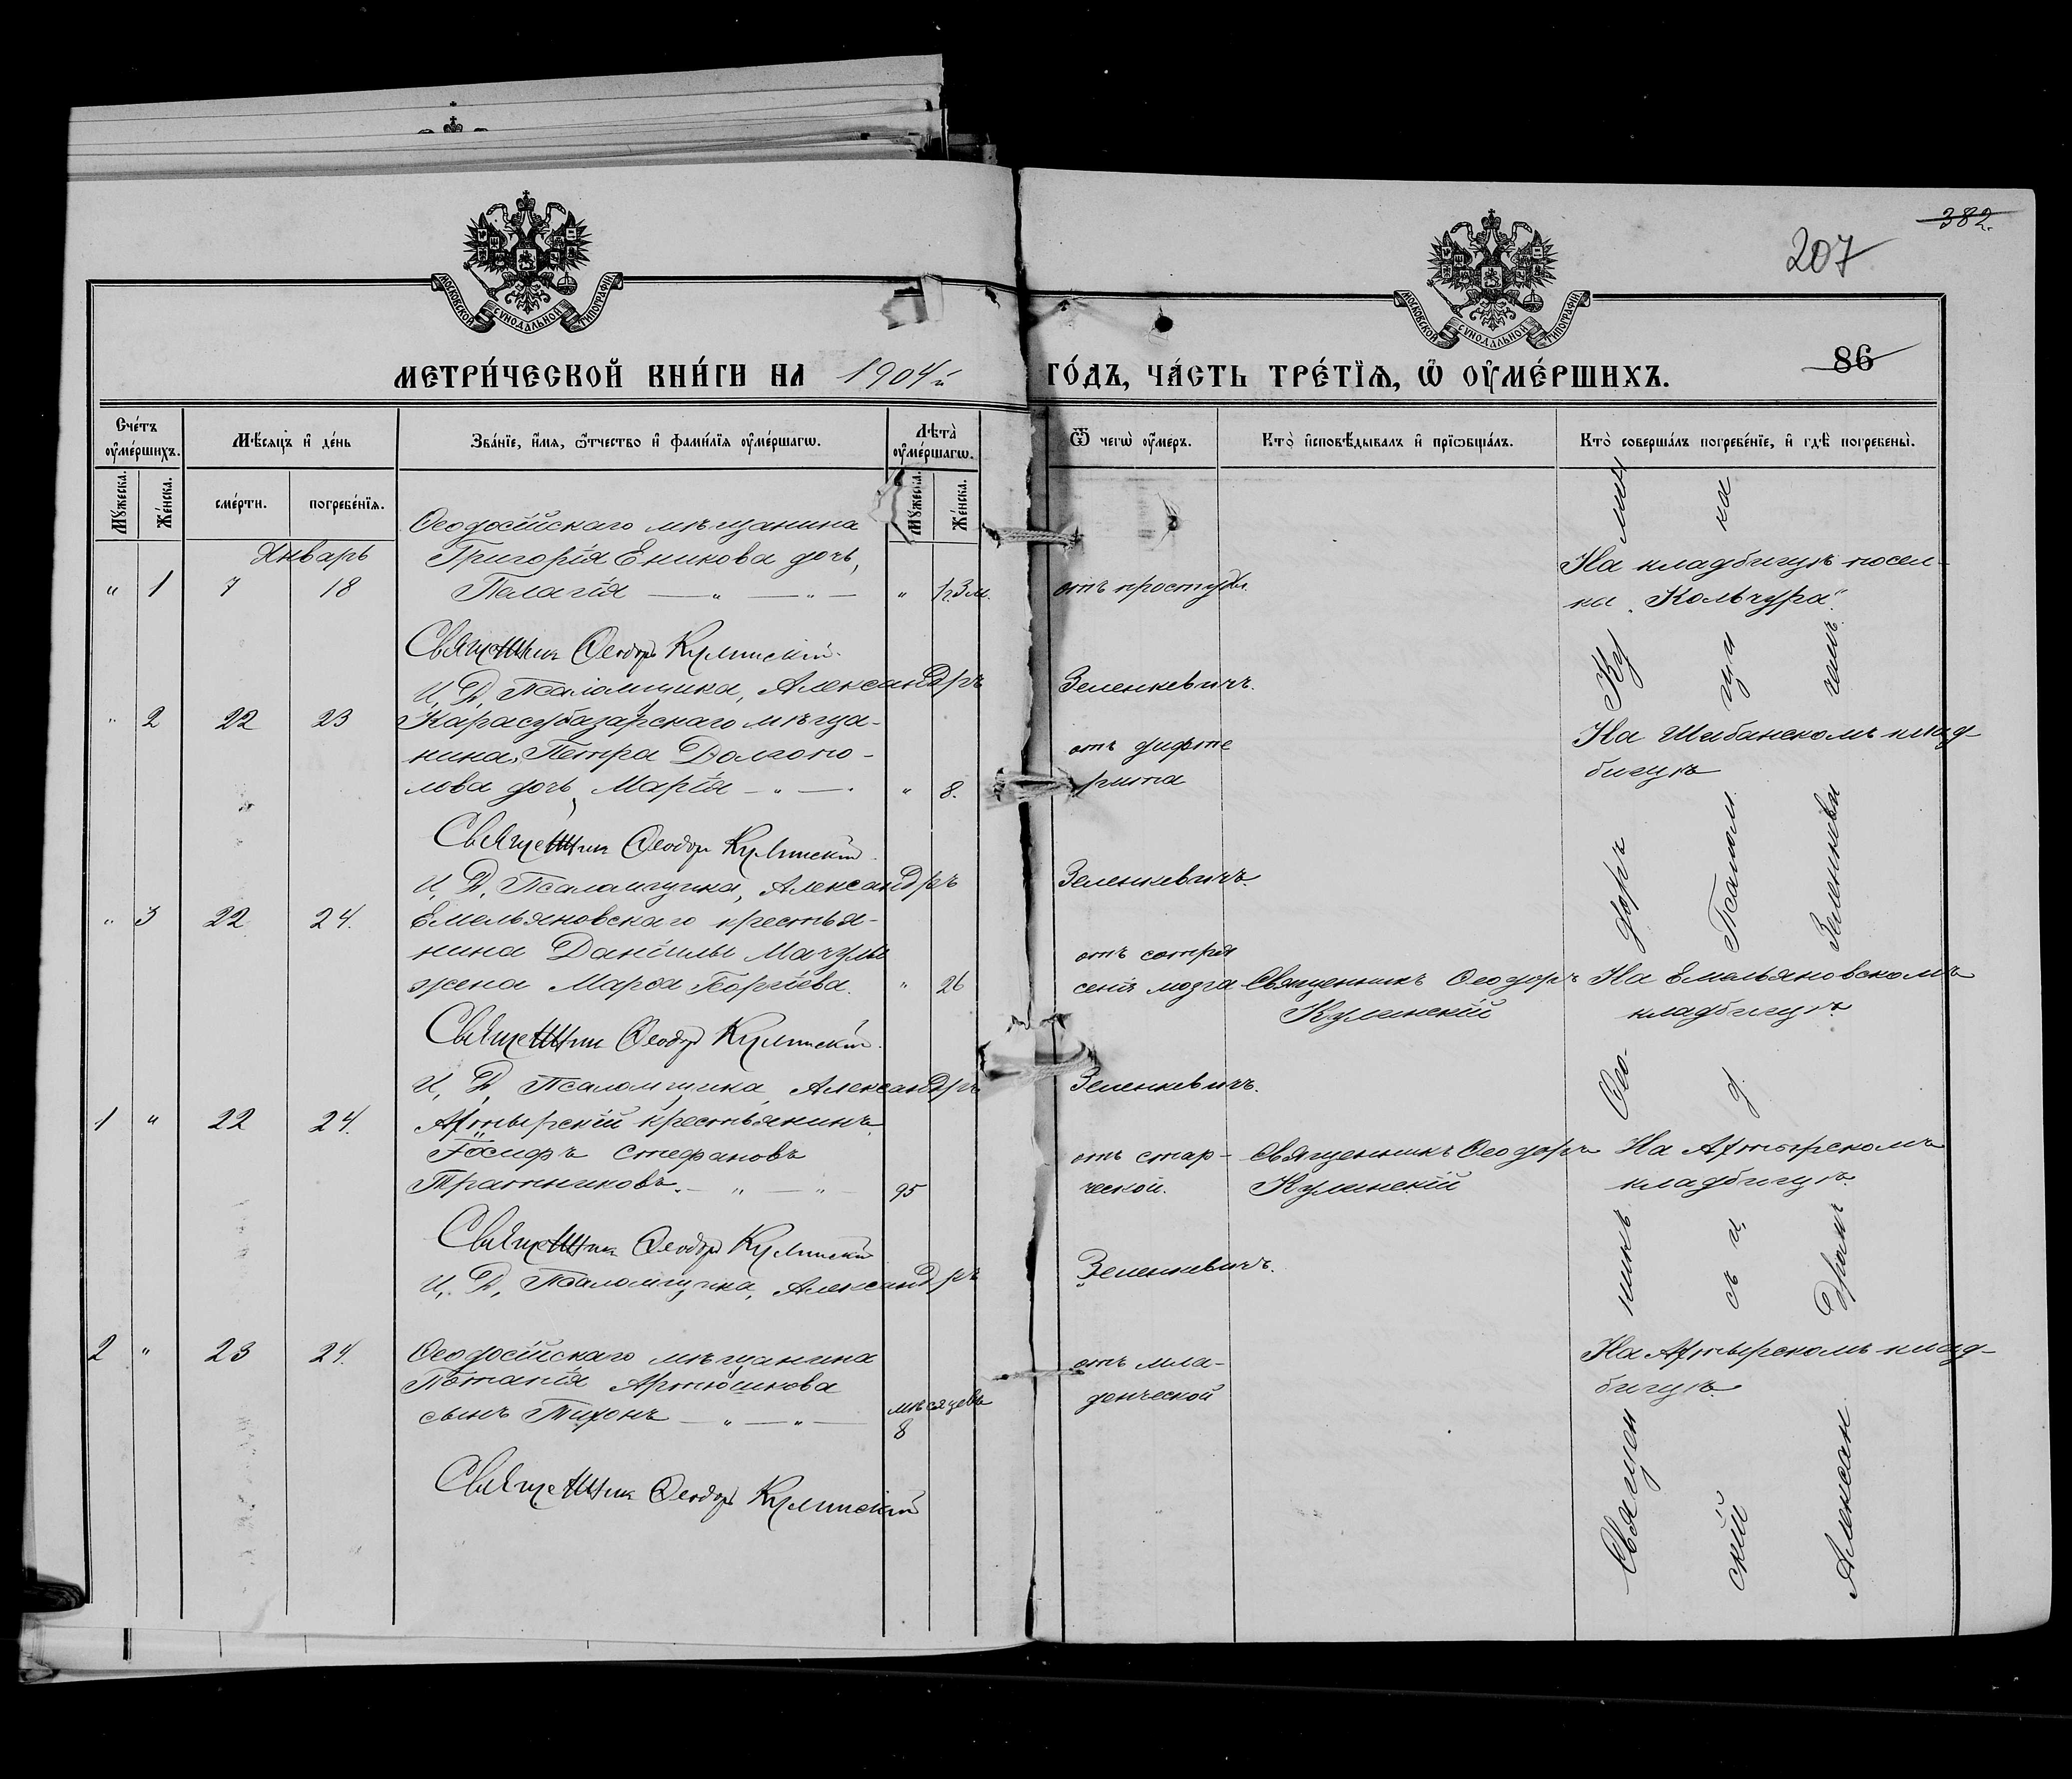 МОСКОВСКОЙ СѴНОДАЛЬНОЙ ТИПОГРАФІИ
МОСКОВСКОЙ СѴНОДАЛЬНОЙ ТИПОГРАФІИ
382.
207
86
МЕТРИ́ЧЕСКОЙ КНИ́ГИ НА 1904й ГО́ДЪ, ЧА́СТЬ ТРЕ́ТЇѦ, Ѿ ОУ҆МЕ́РШИХЪ.
Сче́тъ оу҆ме́ршихъ.
Мѣ́сяцъ и҆ де́нь
Зва́нїе, и҆́мѧ, ѻ҆́тчество и҆ фами́лїѧ оу҆ме́ршагѡ.
Лѣта̀ оу҆ме́ршагѡ.
Ѿ чегѡ̀ оу҆́меръ.
Кто̀ и҆сповѣ́дывалъ и҆ прїѡбща́лъ.
Кто̀ соверша́лъ погребе́нїе, и҆ гдѣ̀ погребены̀.
Мꙋ́жеска.
Же́нска.
сме́рти.
погребе́нїѧ.
Мꙋ́жеска.
Же́нска.
Январь
Ѳеодосійскаго мѣщанина
Григорія Еникова дочь,
" 1 7 18 Пелагія — " — " — " 1г.3м. отъ простуды
На кладбищѣ посел-
ка „Кольчура".
Священникъ Ѳеодоръ Кулинскій.
И, Д, Псаломщика, Александръ Зеленкевичъ.
" 2 22 23 Карасубазарскаго мѣща-
нина, Петра Долгопо-
лова дочь, Марія — " — " 8.
отъ дифте
рита
На Шибанскомъ клад-
бищѣ
Священникъ Ѳеодоръ Кулинскій.
И, Д, Псаломщика, Александръ Зеленкевичъ.
" 3 22 24. Емельяновскаго крестья-
нина Даніилы Мачулы
жена Марѳа Георгіева. " 26
отъ сотря
сенія мозга
Священникъ Ѳеодоръ
Кулинскій
На Емельяновскомъ
кладбищѣ
Священникъ Ѳеодоръ Кулинскій.
И, Д, Псаломщика, Александръ Зеленкевичъ.
1 " 22 24. Ахтырскій крестьянинъ
Іосифъ Стефановъ
Тратниковъ. — " — " — 95
отъ стар-
ческой.
Священникъ Ѳеодоръ
Кулинскій
На Ахтырскомъ
кладбищѣ.
Священникъ Ѳеодоръ Кулинскій
И, Д, Псаломщика, Александръ Зеленкевичъ.
2 " 23 24. Ѳеодосійскаго мѣщанина
Потапія Артюшкова
сынъ Тихонъ — " — " — мѣсяцевъ
8
отъ мла-
денческой
На Ахтырскомъ клад-
бищѣ.
Священникъ Ѳеодоръ Кулинскій
Священ никъ Ѳео- доръ Ку лин
скій съ и, д. Псалом щи ка
Алексан дромъ Зеленкеви чемъ